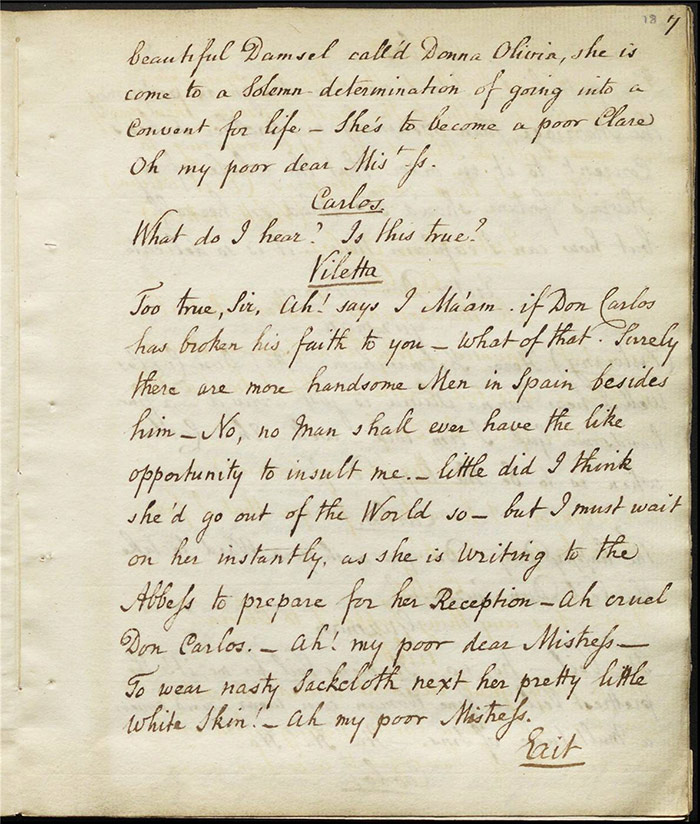 18 7
beautiful Damsel call'd Donna Olivia, she is
come to a Solemn determination of going into a
Convent for life – She's to become a poor Clare
Oh my poor dear Mist-ſs.
Carlos.
What do I hear? Is this true?
Viletta
Too true, Sir, Ah! says I Ma'am. if Don Carlos
has broken his faith to you – what of that. Surely
there are more handsome Men in Spain besides
him – No, no Man shall ever have the like
opportunity to insult me. – little did I think
she'd go out of the World so – but I must wait
on her instantly, as she is writing to the
Abbeſs to prepare for her Reception – Ah cruel
Don Carlos. – Ah! my poor dear Mistreſs –
To wear nasty Sackcloth next her pretty little
White Skin! – Ah my poor Mistreſs.
Exit